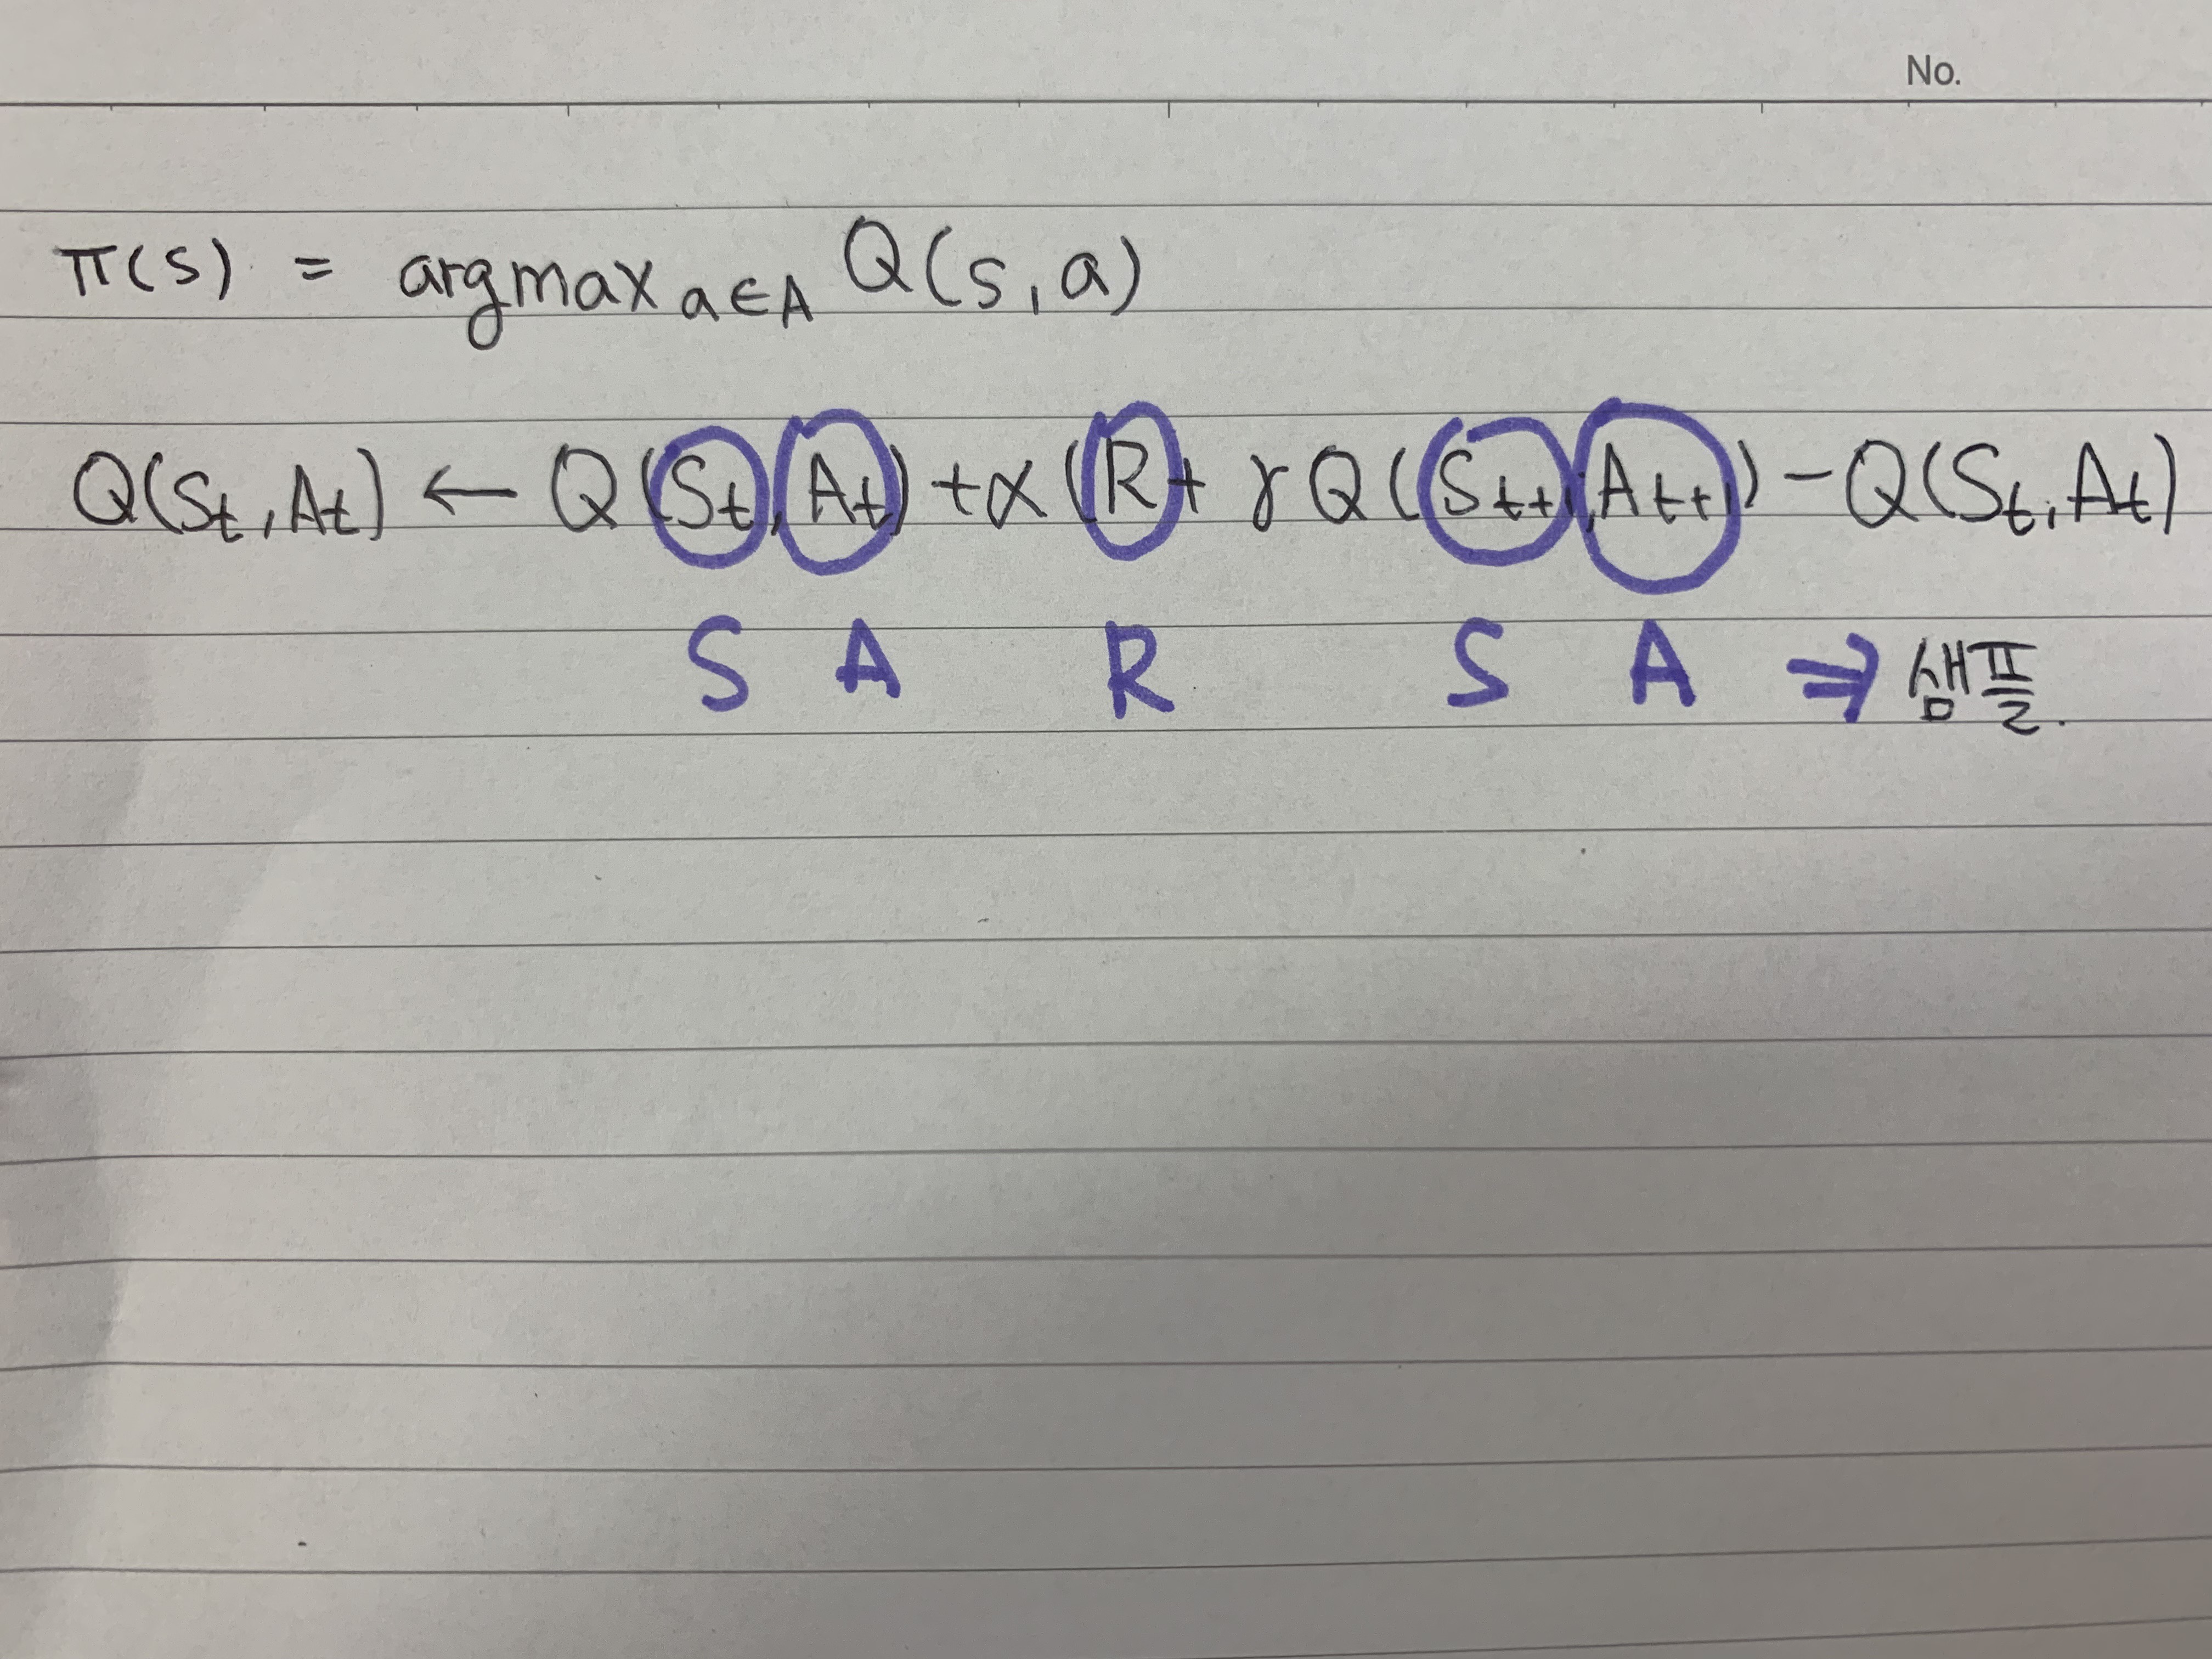 No.
π(s) = argmax a∈A Q(s,a)
Q(St,At) ← Q(St,At) + α(R + γQ(St+1,At+1) - Q(St,At)
S A R S A ⇒ 샘플.